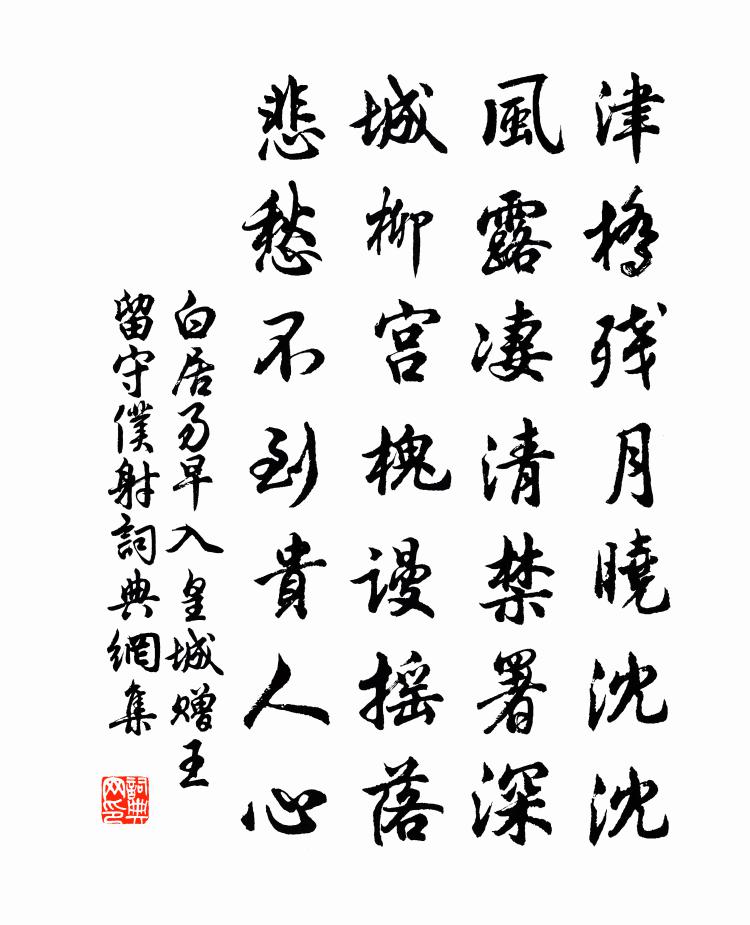 津橋残月曉沈沈
風露凄清禁署深
城柳宫槐谩摇落
悲愁不到貴人心
白居易早入皇城赠王
留守僕射詞典網集
詞典
网印